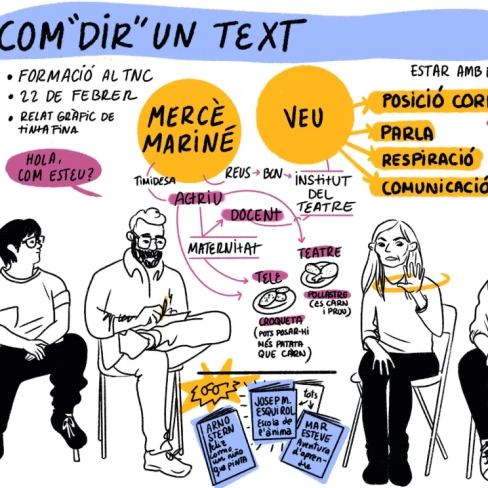 COM "DIR" UN TEXT
• FORMACIÓ AL TNC
• 22 DE FEBRER
• RELAT GRÀFIC DE
TINTA FINA
HOLA,
COM ESTEU?
MERCÈ
MARINÉ
VEU
ESTAR AMB
POSICIÓ
PARLA
RESPIRACIÓ
COMUNICACIÓ
TIMIDESA
REUS → BCN →
INSTITUT
DEL
TEATRE
ACTRIU
DOCENT
MATERNITAT
TELE
CROQUETA
(POTS POSAR-HI
MÉS PATATA
QUE CARN)
TEATRE
POLLASTRE
(ÉS CARN
I PROU)
ARNO
STERN
feliz
como
un niño
que PINTA
JOSEP M.
ESQUIROL
Escola de
l'ànima
tots
MAR
ESTEVE
Aventura
d'apren-
dre